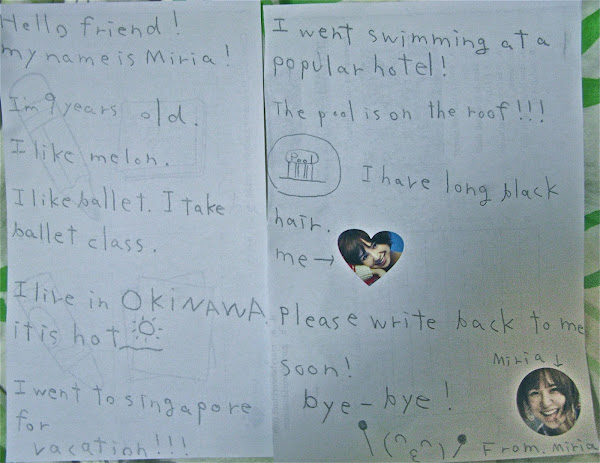 Hello friend!
my name is Miria!
I'm 9 years old.
I like melon.
I like ballet. I take
ballet class.
I live in OKINAWA.
it is hot
I went to singapore
for
vacation!!!
I went swimming at a
popular hotel!
The pool is on the roof!!!
Pool
I have long black
hair.
me→
Please write back to me
soon!
Miria↓
bye-bye!
From. Miria